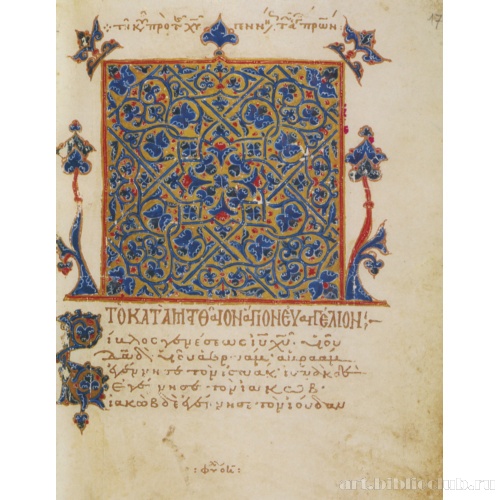 17
ΤΟ ΚΑΤΑ ΜΑΤΘΑΙΟΝ ΑΓΙΟΝ ΕΥΑΓΓΕΛΙΟΝ
Βίβλος γενέσεως ιυ χυ υἱοῦ
Δαδ υἱοῦ ἀβραάμ. ἀβραὰμ
ἐγέννησε τὸν ἰσαάκ. ἰσαὰκ δὲ
ἐγέννησε τὸν ἰακώβ.
ἰακὼβ δὲ ἐγέννησε τὸν ἰούδαν
art.biblioclub.ru